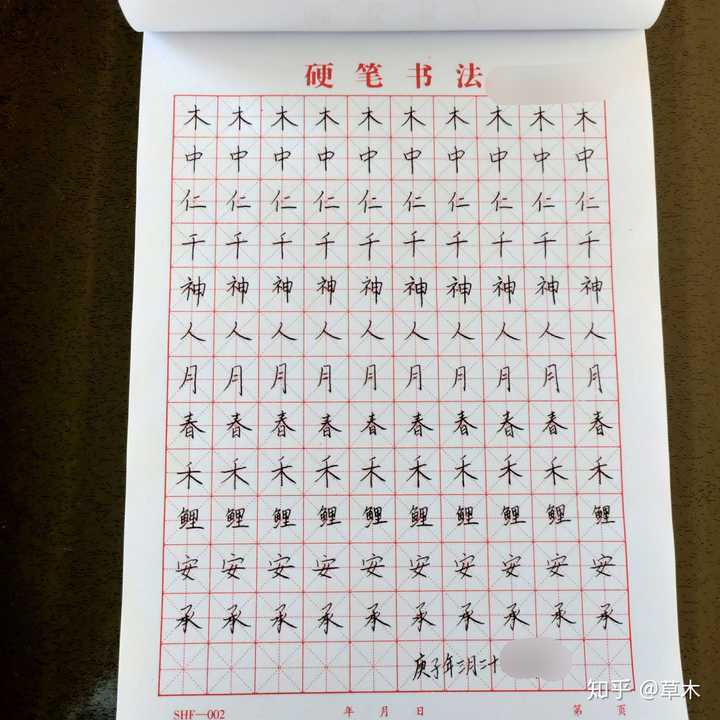 硬笔书法
木木木木木木木木木木
中中中中中中中中中中
仁仁仁仁仁仁仁仁仁仁
千千千千千千千千千千
神神神神神神神神神神
人人人人人人人人人人
月月月月月月月月月月
春春春春春春春春春春
禾禾禾禾禾禾禾禾禾禾
鲤鲤鲤鲤鲤鲤鲤鲤鲤鲤
安安安安安安安安安安
承承承承承承承承承承
庚子年三月二十
SHF—002 年 月 日 第 页
知乎 @草木